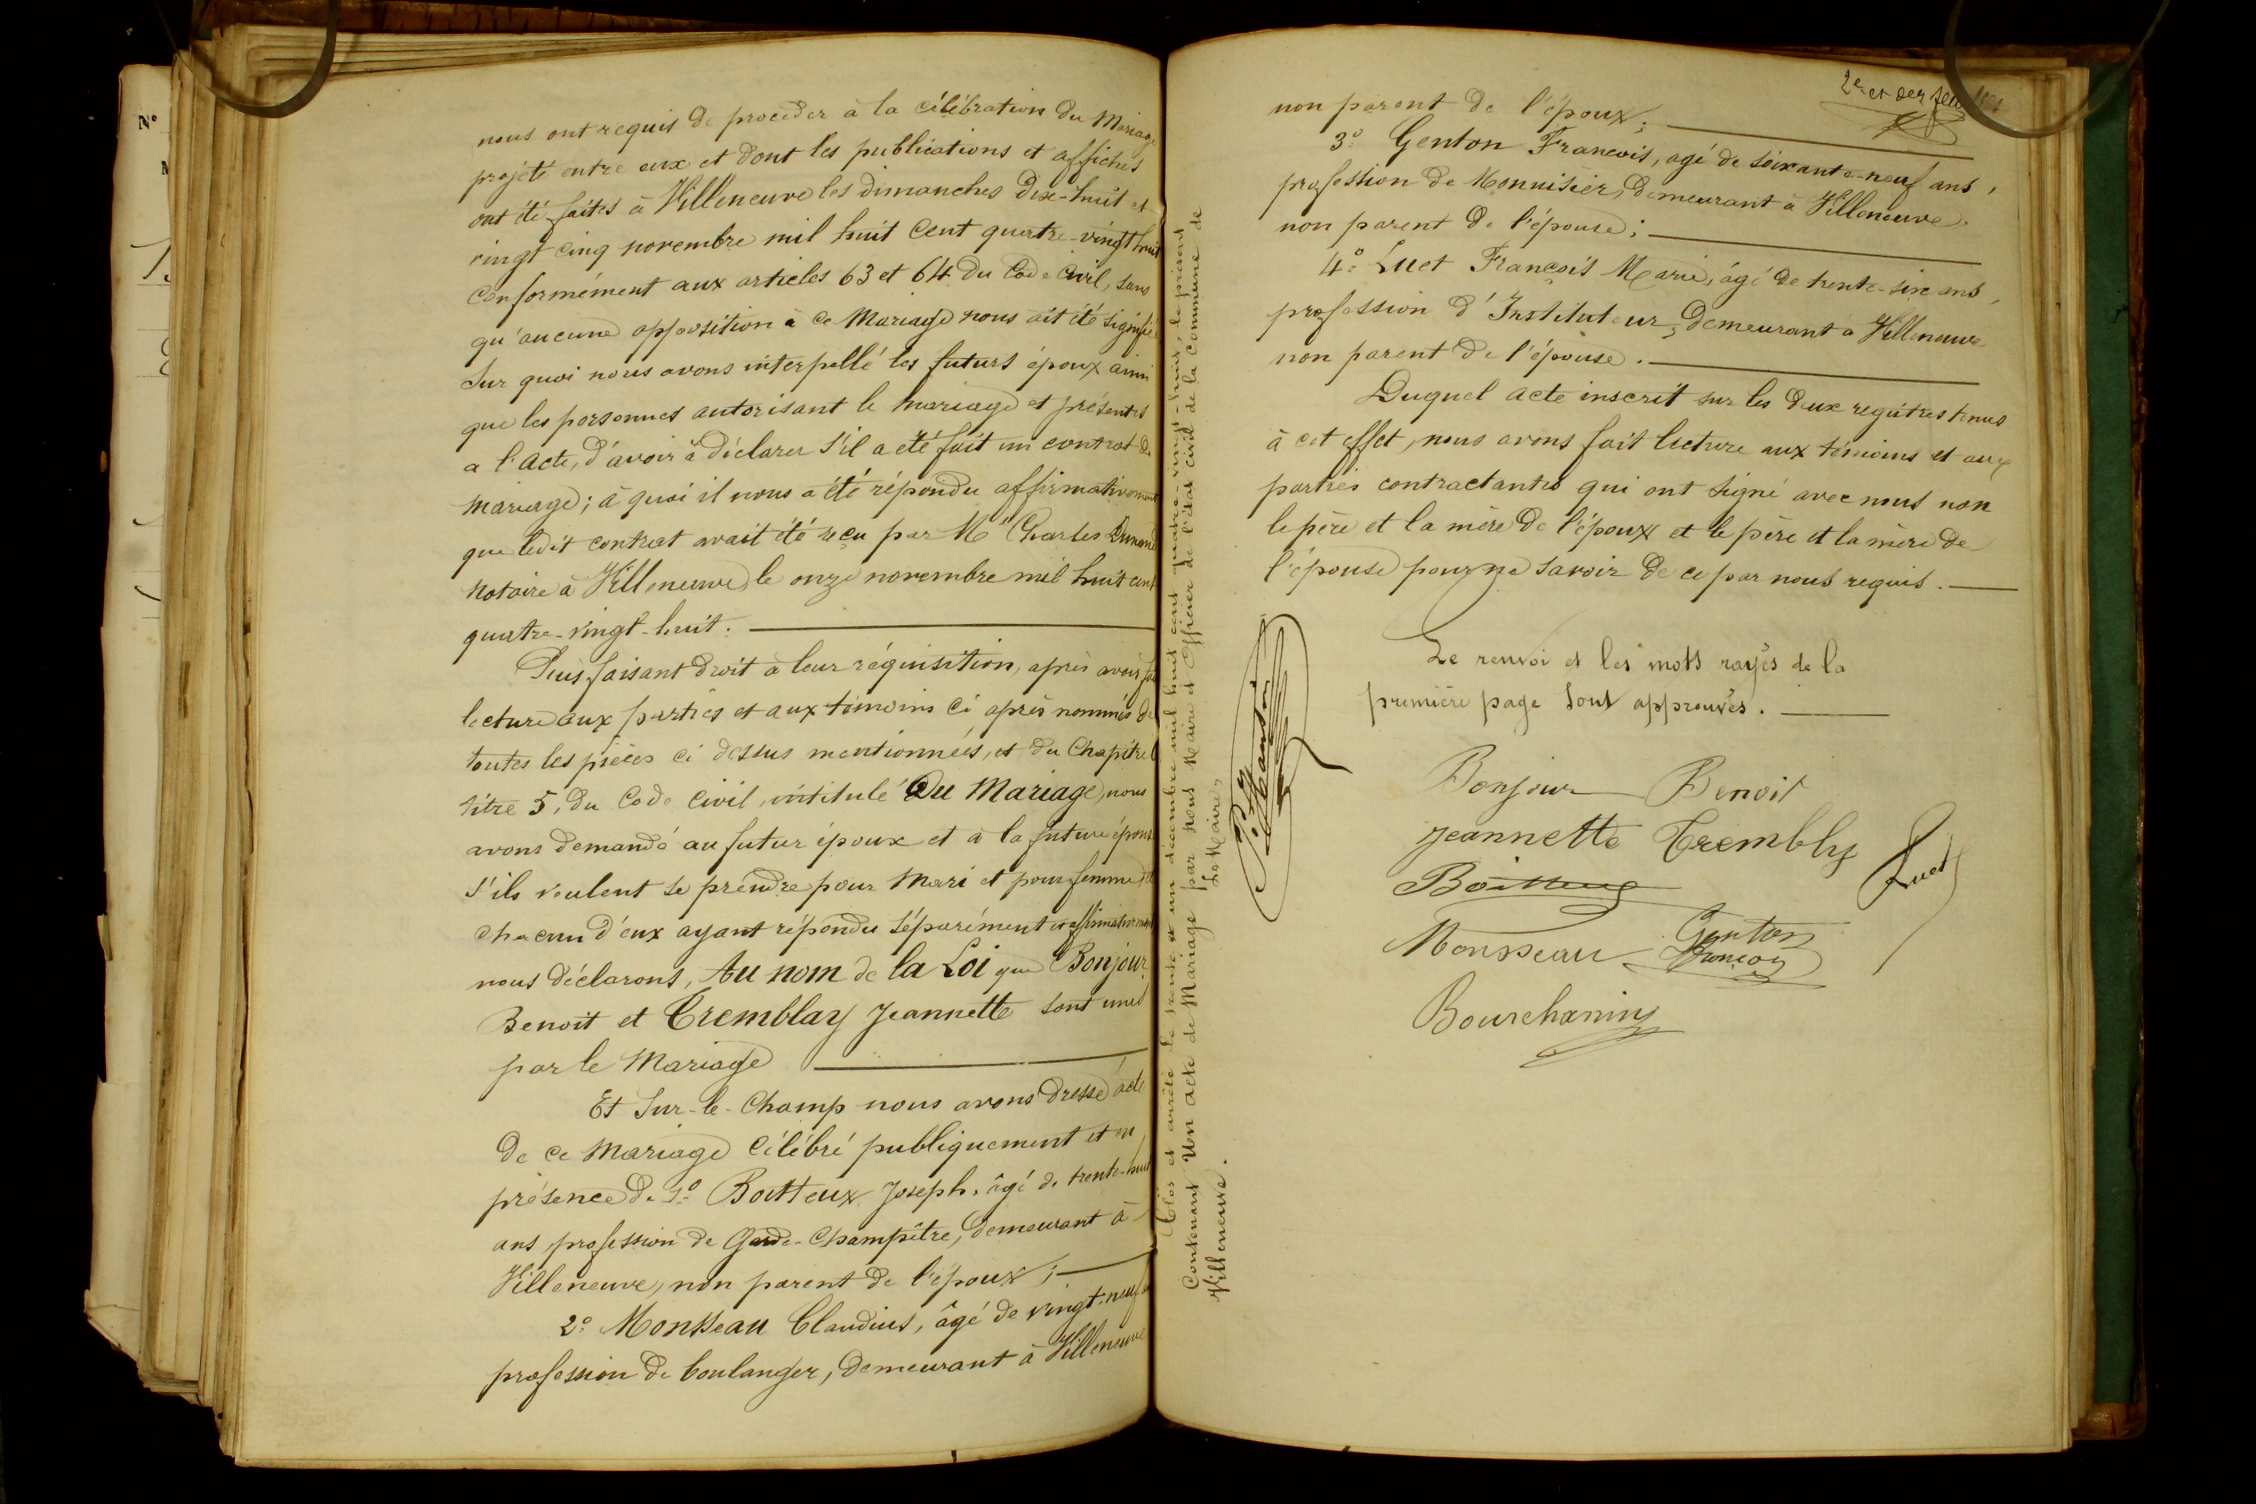 nous ont requis de procéder à la célébration du Mariage
projété entre eux et dont les publications et affiches
ont été faites à Villeneuve les dimanches Dix-huit et
vingt cinq novembre mil huit cent quatre-vingt huit
conformément aux articles 63 et 64 du Code Civil, sans
qu'aucune opposition à ce Mariage nous ait été signifié
Sur quoi nous avons interpellé les futurs époux ainsi
que les personnes autorisant le mariage et présentes
a l'acte, d'avoir à déclarer s'il a été fait un contrat de
mariage; à quoi il nous a été répondu affirmativement
que ledit contrat avait été reçu par Me Charles
notaire à Villeneuve le onze novembre mil huit cent
quatre-vingt-huit.
Puis faisant droit à leur réquisition, après avoir fait
lecture aux parties et aux témoins ci après nommés de
toutes les pièces ci dessus mentionnées, et du Chapitre 6
titre 5, du Code Civil, intitulé Du Mariage, nous
avons demandé au futur époux et à la future épouse
s'ils veulent se prendre pour Mari et pour femme et
chacun d'eux ayant répondu séparément et affirmativement
nous déclarons, Au nom de la Loi que Bonjour
Benoit et Tremblay Jeannette sont unis
par le Mariage
Et Sur-le-Champ nous avons dressé acte
de ce Mariage célébré publiquement et en
présence de 1º Boitteux Joseph, âgé de trente-huit
ans profession de Garde-Champêtre, demeurant à
Villeneuve, non parent de l'époux;
2º Monsseau Claudius, âgé de vingt-neuf
profession de boulanger, demeurant à Villeneuve
Clos et arrêté le trente et un décembre mil huit cent quatre-vingt-huit, le présent
Contenant Un acte de Mariage par nous Maire et Officier de l'état civil de la Commune de
Villeneuve.
Le Maire,
2e et der
non parent de l'époux;
3º Genton Francois, agé de soixante-neuf ans,
profession de Menuisier, demeurant à Villeneuve
non parent de l'épouse;
4º Luet François Marie, âgé de trente-six ans,
profession d'Instituteur, demeurant à Villeneuve
non parent de l'épouse.
Duquel acte inscrit sur les deux registres tenus
à cet effet, nous avons fait lecture aux témoins et aux
parties contractantes qui ont signé avec nous non
le père et la mère de l'époux et le père et la mère de
l'épouse pour ne savoir de ce par nous requis.
Le renvoi et les mots rayés de la
première page sont approuvés.
Bonjour Benoit
Jeannette Trembly
Boitteux
Luet
Monsseau
Genton
François
Bourchanin